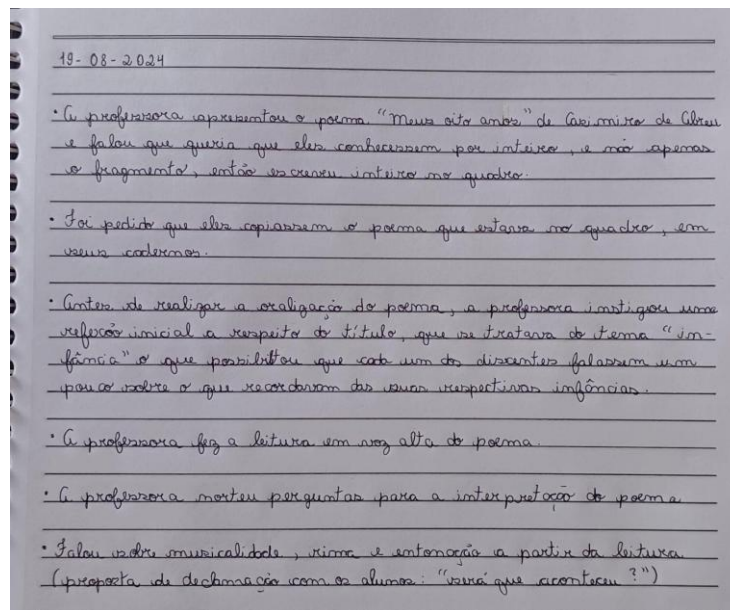 19-08-2024
• A professora apresentou o poema "Meus oito anos" de Casimiro de Abreu
e falou que queria que eles conhecessem por inteiro, e não apenas
o fragmento, então escreveu inteiro no quadro.
• Foi pedido que eles copiassem o poema que estava no quadro, em
seus cadernos.
• Antes de realizar a oralização do poema, a professora instigou uma
reflexão inicial a respeito do título, que se tratava do tema "in-
fância" o que possibilitou que cada um dos discentes falassem um
pouco sobre o que recordavam das suas respectivas infâncias.
• A professora fez a leitura em voz alta do poema.
• A professora norteu perguntas para a interpretação do poema
• Falou sobre musicalidade, rima e entonação a partir da leitura
(proposta de declamação com os alunos: "será que aconteceu?")